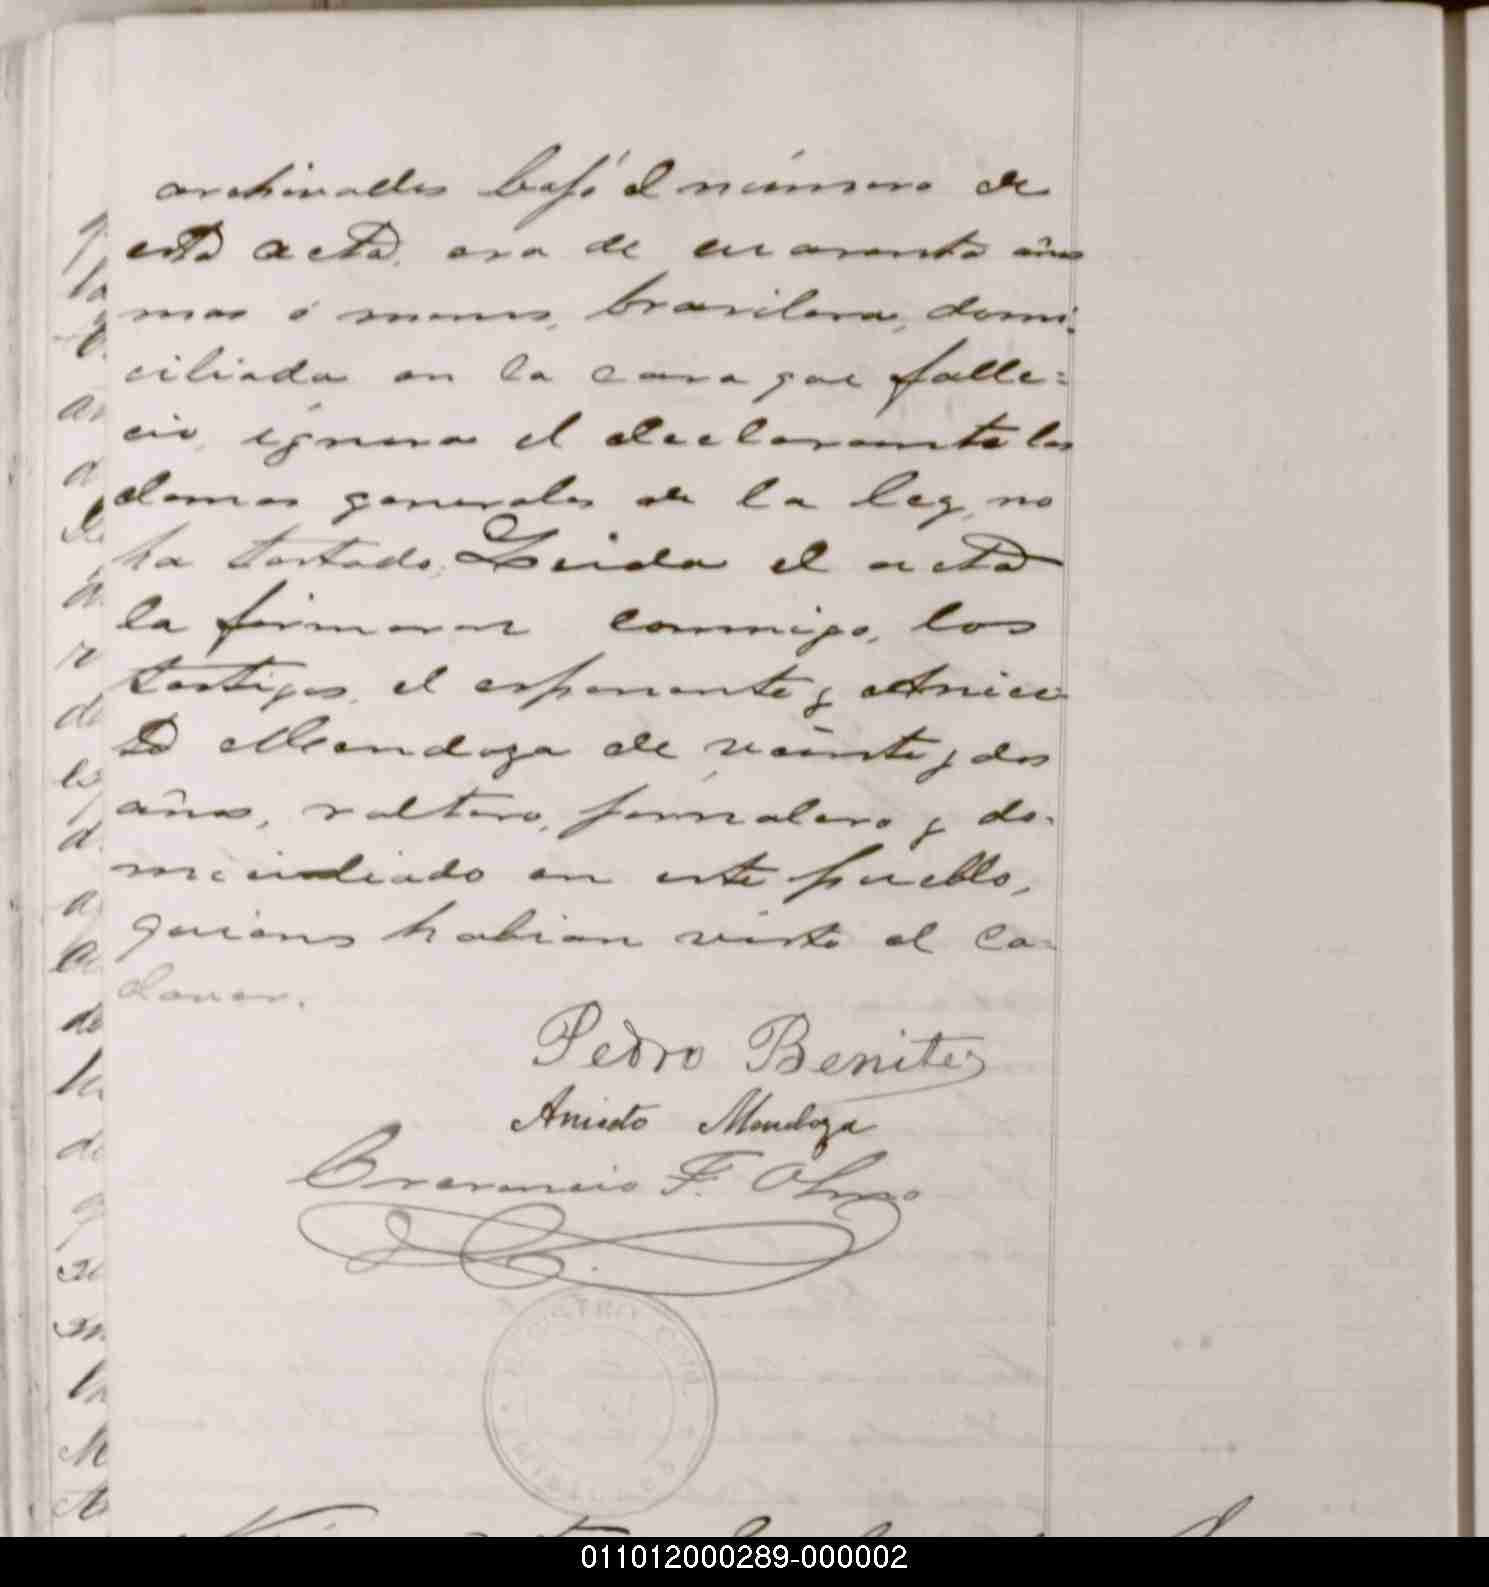 archivados bajo el número de
esta acta, era de cuarenta años
mas ó menos, brasilera, domi-
ciliada en la casa que falle-
ció, ignora el declarante las
demas generales de la ley, no
ha testado. Leida el acta
la firmaron conmigo, los
testigos, el esponente y Anice-
to Mendoza de veinte y dos
años, soltero, jornalero y do-
miciliado en este pueblo,
quienes habian visto el ca-
daver.
Pedro Benitez
Aniceto Mendoza
F. Olmo
011012000289-000002